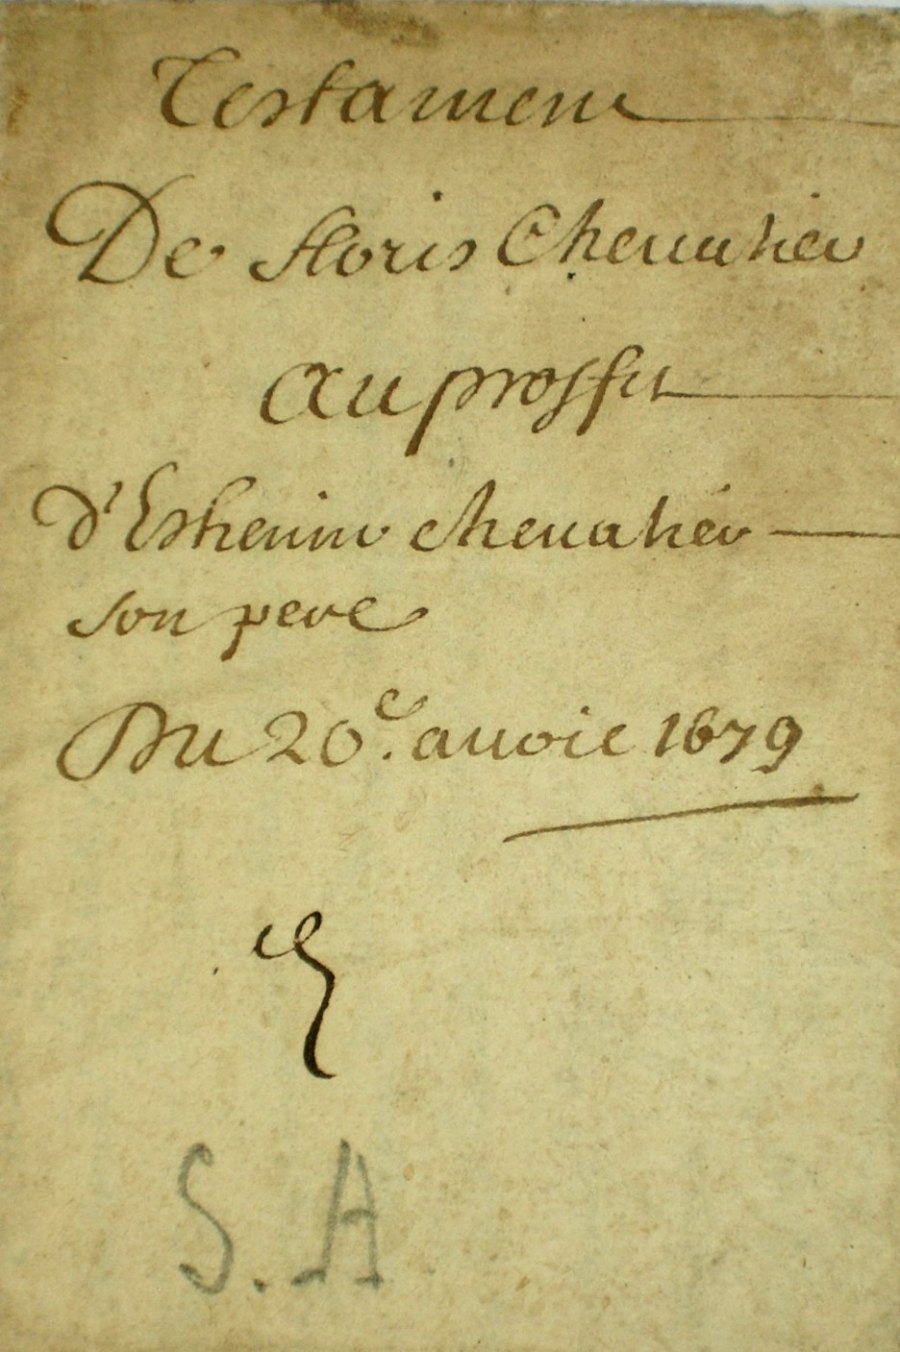 Testament
De floris Chevalier
Au proffit
d'Estienne chevalier
son pere
Du 20e. avoic 1679
S. A